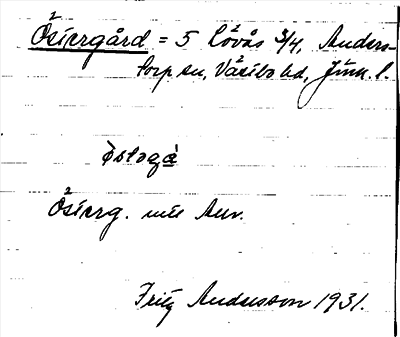 Östergård = 5 Lövås 3/4, Anders-
torp sn, Västbo hd, Jönk. l.
östogɑ
Österg. mil Aur.
Fritz Andersson 1931.